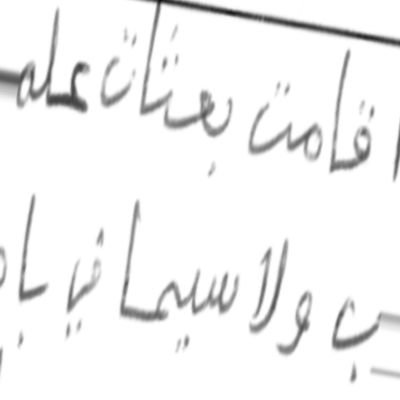 قامت بعثات عل
ولا سيما في با